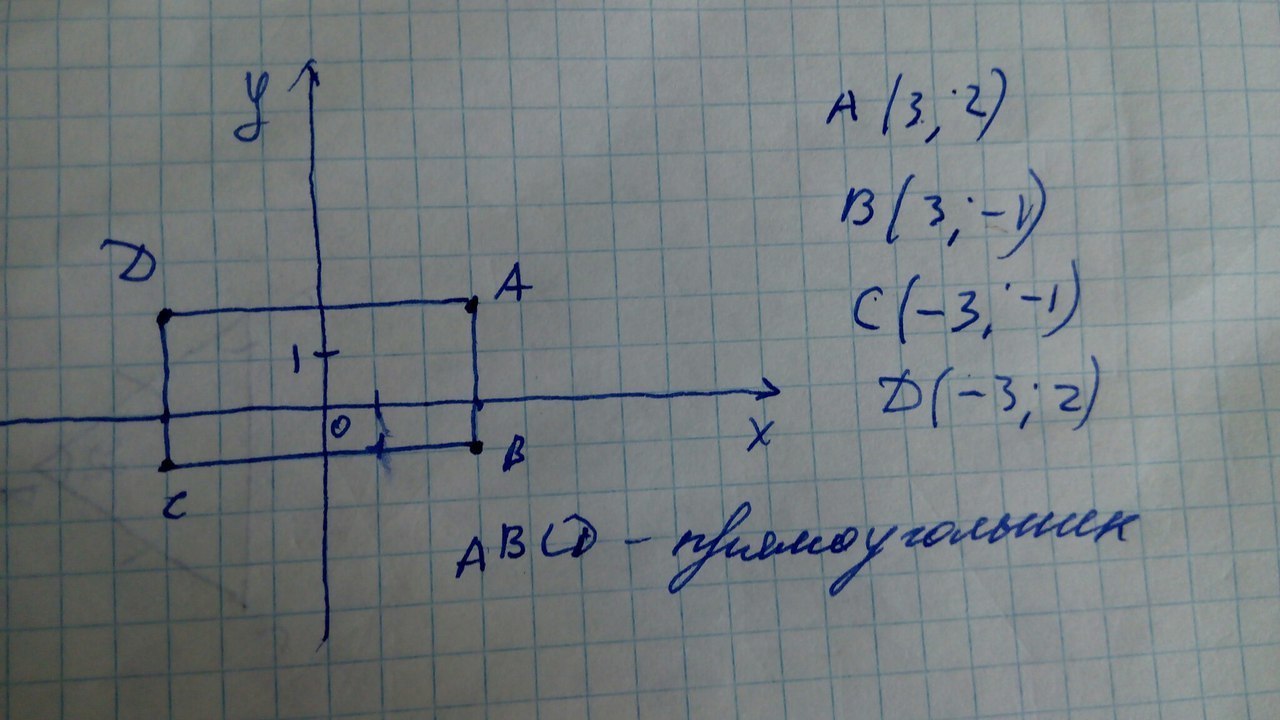 y
A (3; 2)
B (3; -1)
D
A
C (-3; -1)
1
D (-3; 2)
0
x
B
C
ABCD - прямоугольник